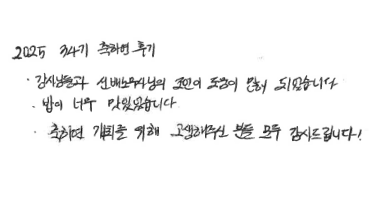 2025 34기 축하연 후기
· 강사님들과 선배노무사님의 조언이 도움이 많이 되었습니다
· 밥이 너무 맛있었습니다
· 축하연 개최를 위해 고생해주신 분들 모두 감사드립니다!